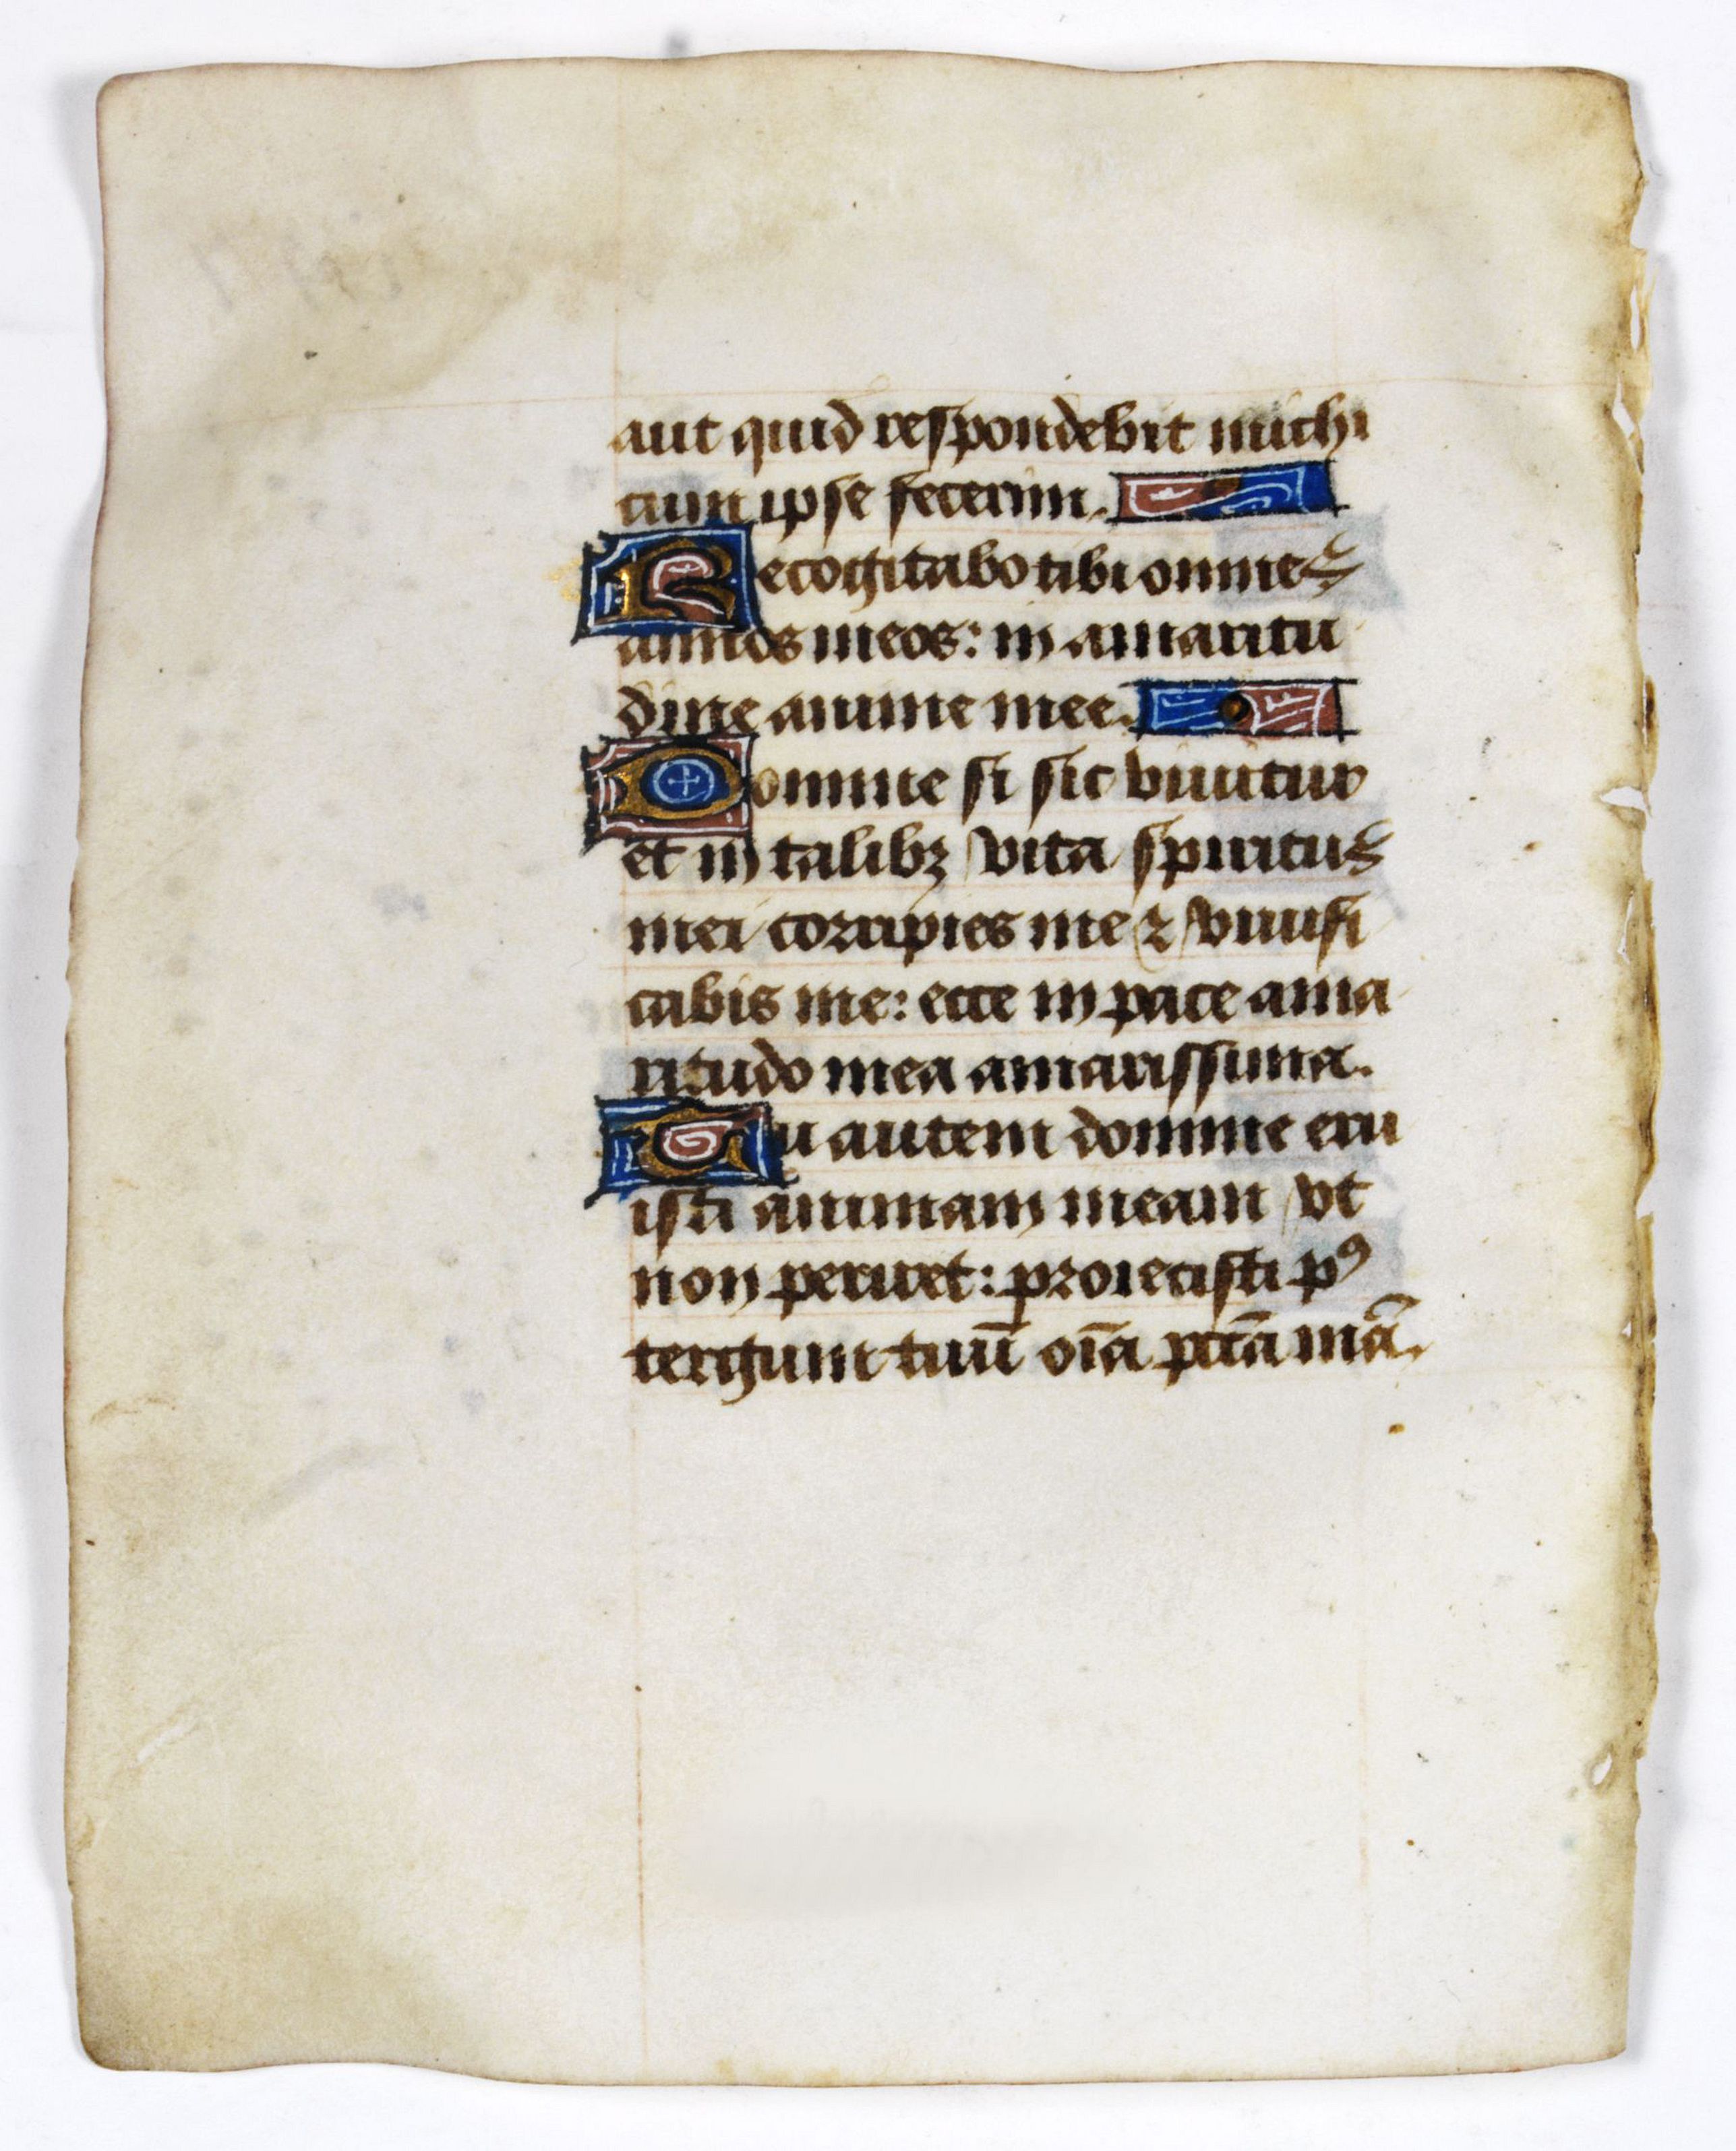 aut quid respondebit michi
cum ipse fecerim.
Recogitabo tibi omnes
annos meos: in amaritu
dine anime mee.
Domine si sic viuitur
et in talibꝫ vita spiritus
mei corripies me ⁊ viuifi
cabis me: ecce in pace ama
ritudo mea amarissima.
Tu autem domine eru
isti animam meam vt
non periret: proiecisti pꝰ
tergum tuū oīa pctā mā.